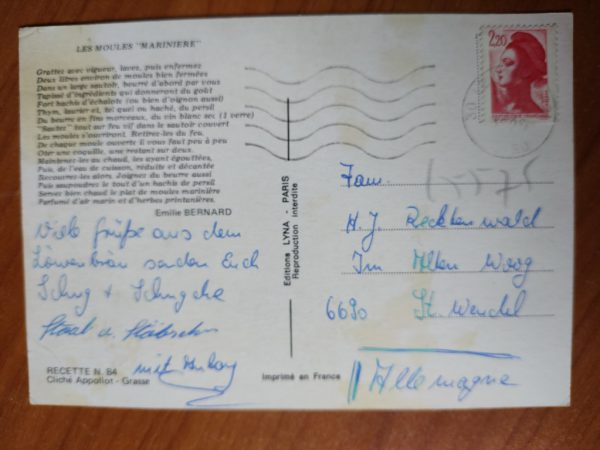 LES MOULES "MARINIERE"
Grattez avec vigueur, lavez, puis enfermez
Deux litres environ de moules bien fermées
Dans un large sautoir, beurré d'abord par vous
Tapissé d'ingrédients qui donneront du goût
Fort hachis d'échalote (ou bien d'oignon aussi)
Thym, laurier et, tel quel ou haché, du persil
Du beurre en fins morceaux, du vin blanc sec (1 verre)
"Sautez" tout sur feu vif dans le sautoir couvert
Les moules s'ouvriront. Retirez-les du feu,
De chaque moule ouverte il vous faut peu à peu
Oter une coquille, une restant sur deux.
Maintenez-les au chaud, les ayant égouttées,
Puis, de l'eau de cuisson, réduite et décantée
Recouvrez-les alors. Joignez du beurre aussi
Puis saupoudrez le tout d'un hachis de persil
Servez bien chaud le plat de moules marinière
Parfumé d'air marin et d'herbes printanières.
Emilie BERNARD
Viele Grüße aus dem
Löwenbräu senden Euch
RECETTE N. 84
Cliché Appollot - Grasse
Editions LYNA - PARIS
Reproduction interdite
Imprimé en France
2,20
Fam.
H. J. Recktenwald
Im Alten Woog
6690 St. Wendel
Allemagne